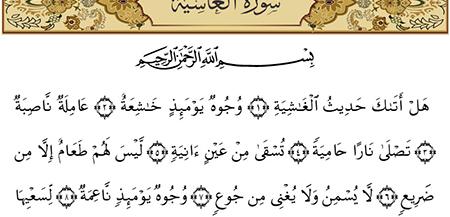 سورة الغاشية
بِسْمِ ٱللَّهِ ٱلرَّحْمَٰنِ ٱلرَّحِيمِ
هَلْ أَتَىٰكَ حَدِيثُ ٱلْغَٰشِيَةِ ﴿١﴾ وُجُوهٌ يَوْمَئِذٍ خَٰشِعَةٌ ﴿٢﴾ عَامِلَةٌ نَّاصِبَةٌ
﴿٣﴾ تَصْلَىٰ نَارًا حَامِيَةً ﴿٤﴾ تُسْقَىٰ مِنْ عَيْنٍ ءَانِيَةٍ ﴿٥﴾ لَّيْسَ لَهُمْ طَعَامٌ إِلَّا مِن
ضَرِيعٍ ﴿٦﴾ لَّا يُسْمِنُ وَلَا يُغْنِى مِن جُوعٍ ﴿٧﴾ وُجُوهٌ يَوْمَئِذٍ نَّاعِمَةٌ ﴿٨﴾ لِّسَعْيِهَا